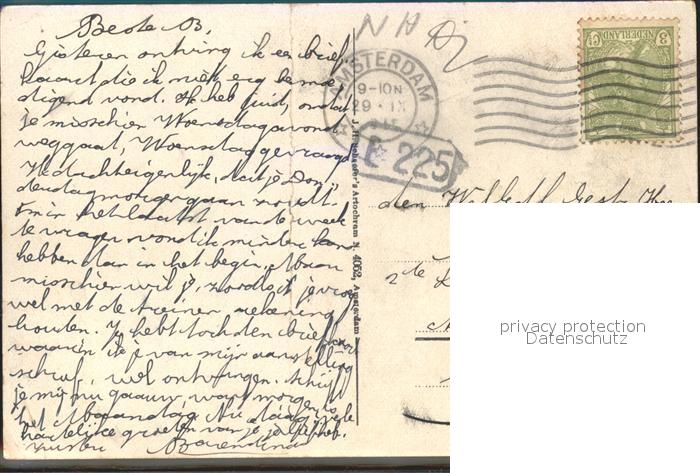 Beste B.
Gisteren ontving ik een brief-
kaart die ik niet erg bemoe-
digend vond. Ik heb juist, omdat
je misschien Woensdagavond
weggaat, Woensdag gevraagd
Ik dacht eigenlijk, dat je Don-
derdagmorgen gaan zoudt.
Om in het laatst van de week
te vragen vond ik minder kans
hebben dan in het begin. Maar
misschien wil je, zoodoet je vroeg
wel met de treinen rekening
houden. Je hebt toch den brief
waarin ik je van mijn aanstelling
schreef, wel ontvangen. Schrijf
je mij nu gauw, want morgen is
het Maandag. Nu dag, vele
hartelijke groeten van je je liefheb.
zuster Barendina
NH
AMSTERDAM
9-10N
29 · IX
225
3 Ct
J. H. Schaefer's Artochrom N. 4062, Amsterdam
den WelEd. Gestr. Heer
2de
privacy protection
Datenschutz